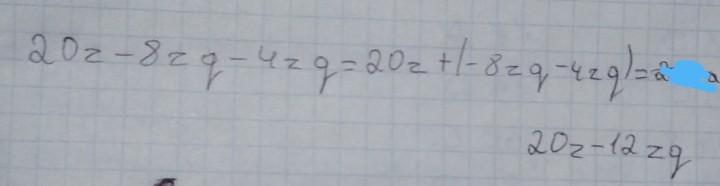 20z-8zq-4zq=20z+(-8zq-4zq)=
20z-12zq